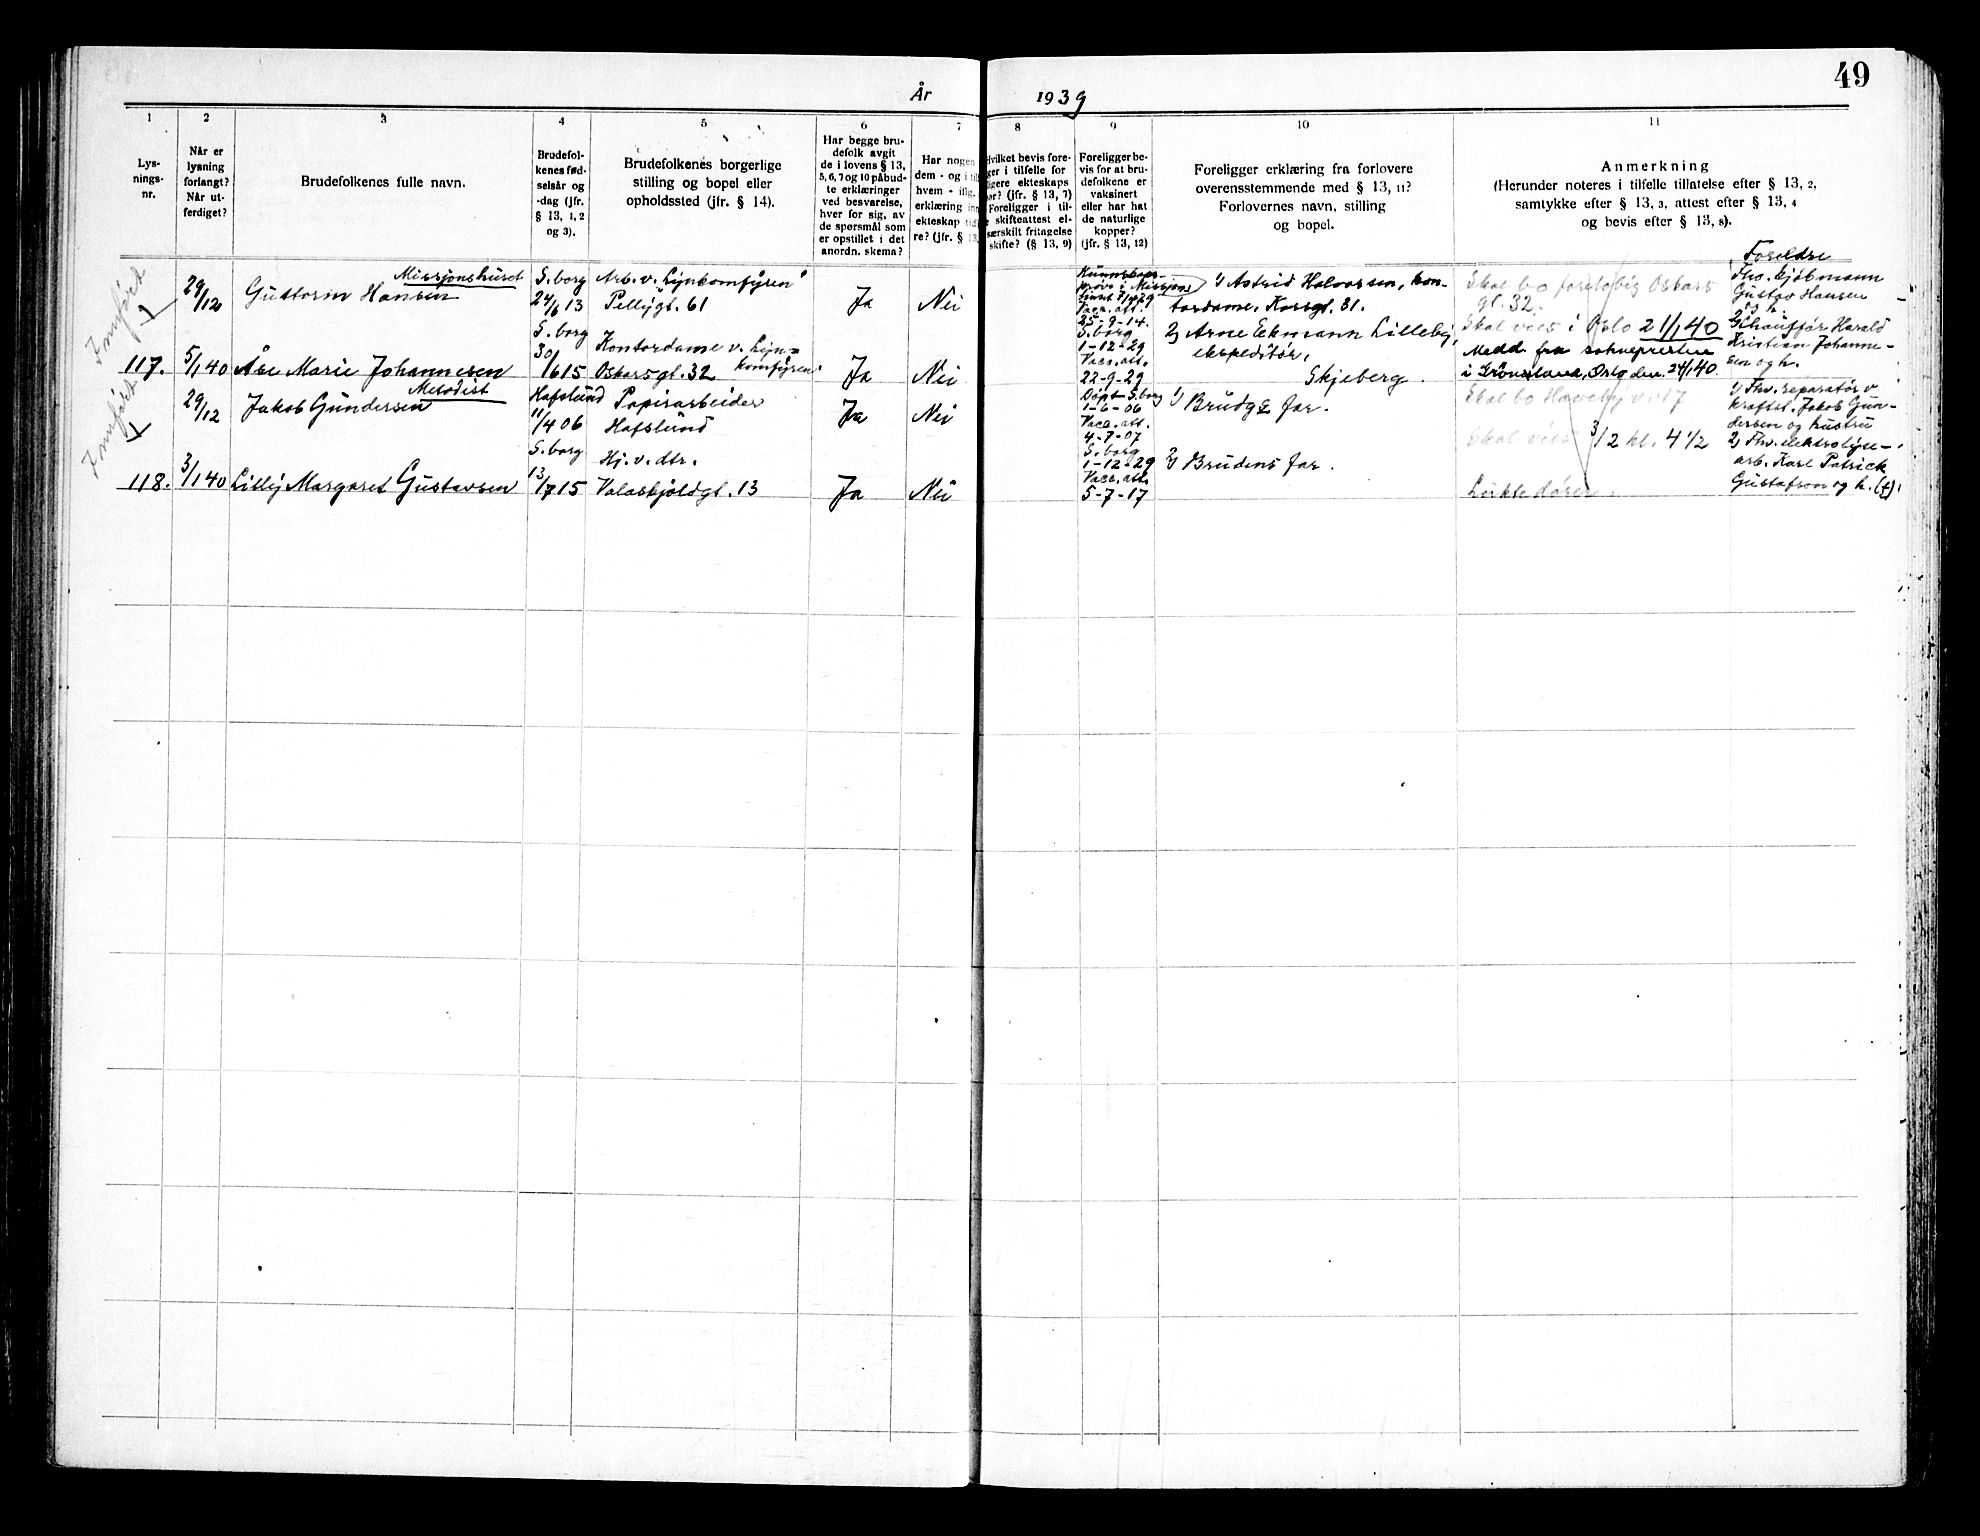 49
År 1939
1
2
3
4
5
6
7
8
9
10
11
Lys-
nings-
nr.
Når er
lysning
forlangt?
Når ut-
ferdiget?
Brudefolkenes fulle navn.
Brudefol-
kenes fød-
selsår og
-dag (jfr.
§ 13, 1, 2
og 3).
Brudefolkenes borgerlige
stilling og bopel eller
opholdssted (jfr. § 14).
Har begge bru-
defolk avgit
de i lovens § 13,
5, 6, 7 og 10 påbud-
te erklæringer
ved besvarelse,
hver for sig, av
de spørsmål som
er opstillet i det
anordn. skema?
Har nogen
dem - og i til
hvem - iflg.
erklæring inn
ekteskap tid
re? (jfr. § 13,
Hvilket bevis fore-
ger i tilfelle for
igere ekteskaps
or? (jfr. § 13, 7)
Foreligger i til-
skifteattest el-
særskilt fritagelse
skifte? (§ 13, 9)
Foreligger be-
vis for at bru-
defolkene er
vaksinert
eller har hat
de naturlige
kopper?
(jfr. § 13, 12)
Foreligger erklæring fra forlovere
overensstemmende med § 13, 11?
Forlovernes navn, stilling
og bopel.
Anmerkning
(Herunder noteres i tilfelle tillatelse efter § 13, 2,
samtykke efter § 13, 3, attest efter § 13, 4
og bevis efter § 13, 8).
Innført
29/12
Missjonshuset
Guttorm Hansen
S. borg
24/6 13
Arb. v. Lynkomfyren
Pellygt. 61
Ja
Nei
Kunnskaps-
prøve i Missjons
Vacc. att.
25-9-14.
1) Astrid Halvorsen, kon-
tordame, Korsgt. 31.
Skal bo foreløbig Oskars
gt. 32.
Foreldre
Gustav Hansen
117.
5/1 40
Åse Marie Johannesen
S. borg
30/6 15
Kontordame v. Lyn-
komfyren
Oskarsgt. 32
Ja
Nei
S. borg
1-12-29
Vacc. att.
22-9-29
2) Arne Ekmann Lilleby,
ekspeditør,
Skjeberg.
Skal vies i Oslo 21/1 40
Medd. fra soknepresten
i Grønland, Oslo den 24/1 40.
2) Chauffør Harald
Kristian Johanne-
sen og h.
Innført
29/12
Metodist
Jakob Gundersen
Hafslund
11/4 06
Papirarbeider
Hafslund
Ja
Nei
Døpt S. borg
1-6-06
Vacc. att.
4-7-07
1) Brudg. far.
Skal bo Haveby v. 17
Skal vies 3/2 kl. 4 1/2
1) Fhv. reparatør v
kraftst. Jakob Gun-
dersen og hustru
118.
3/1 40
Lilly Margaret Gustavsen
S. borg
13/7 15
Hj. v. dtr.
Valaskjoldgt. 13
Ja
Nei
S. borg
1-12-29
Vacc. att.
5-7-17
2) Brudens far.
Lukte dører.
2) Fhv. elektrolyse-
arb. Karl Patrick
Gustafson og h. (f).